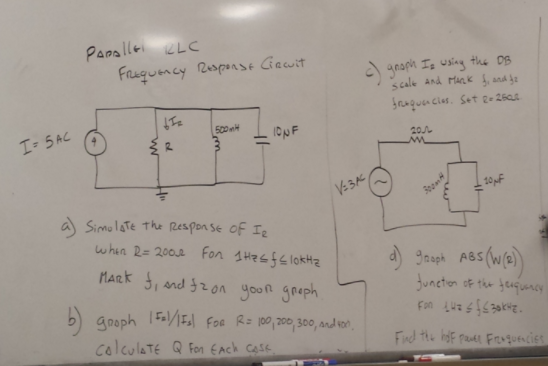 Parallel RLC
Frequency Response Circuit
I = 5 AC
↓IR
R
500mH
10µF
a) Simulate the Response of IR
when R = 200Ω for 1Hz ≤ f ≤ 10kHz
Mark f1 and f2 on your graph
b) graph |IR|/|Is| for R = 100, 200, 300, and
Calculate Q for each case.
c) graph IR using the DB
scale and Mark f1 and f2
frequencies. Set R = 250Ω
20Ω
V=3AC
10µF
d) graph ABS(
function of the frequency
for 1Hz ≤ f ≤ 30kHz.
Find the half power Frequencies